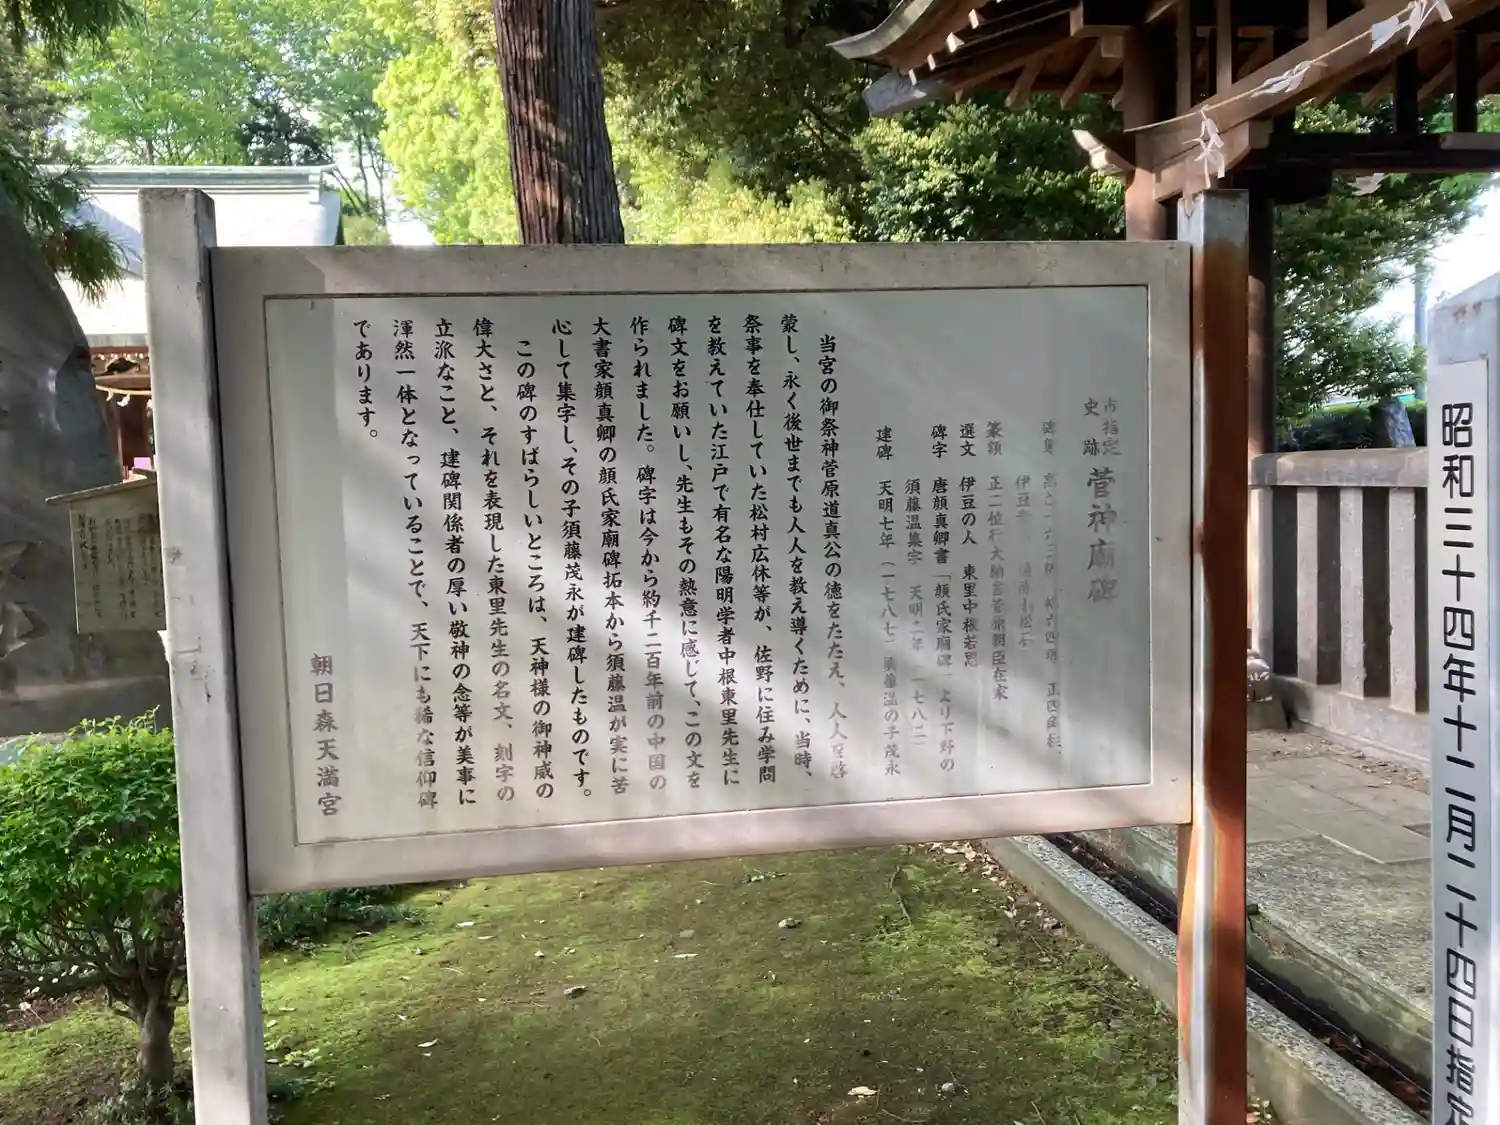 市指定
史跡
菅神廟碑
篆額 正二位行大納言菅原朝臣在家
選文 伊豆の人 東里中根若思
碑字 唐顔真卿書「顔氏家廟碑」より下野の
須藤温集字 天明二年(一七八二)
建碑 天明七年(一七八七)須藤温の子茂永
当宮の御祭神菅原道真公の徳をたたえ、人人を啓
蒙し、永く後世までも人人を教え導くために、当時、
祭事を奉仕していた松村広休等が、佐野に住み学問
を教えていた江戸で有名な陽明学者中根東里先生に
碑文をお願いし、先生もその熱意に感じて、この文を
作られました。碑字は今から約千二百年前の中国の
大書家顔真卿の顔氏家廟碑拓本から須藤温が実に苦
心して集字し、その子須藤茂永が建碑したものです。
この碑のすばらしいところは、天神様の御神威の
偉大さと、それを表現した東里先生の名文、刻字の
立派なこと、建碑関係者の厚い敬神の念等が美事に
渾然一体となっていることで、天下にも稀な信仰碑
であります。
朝日森天満宮
昭和三十四年十二月二十四日指定